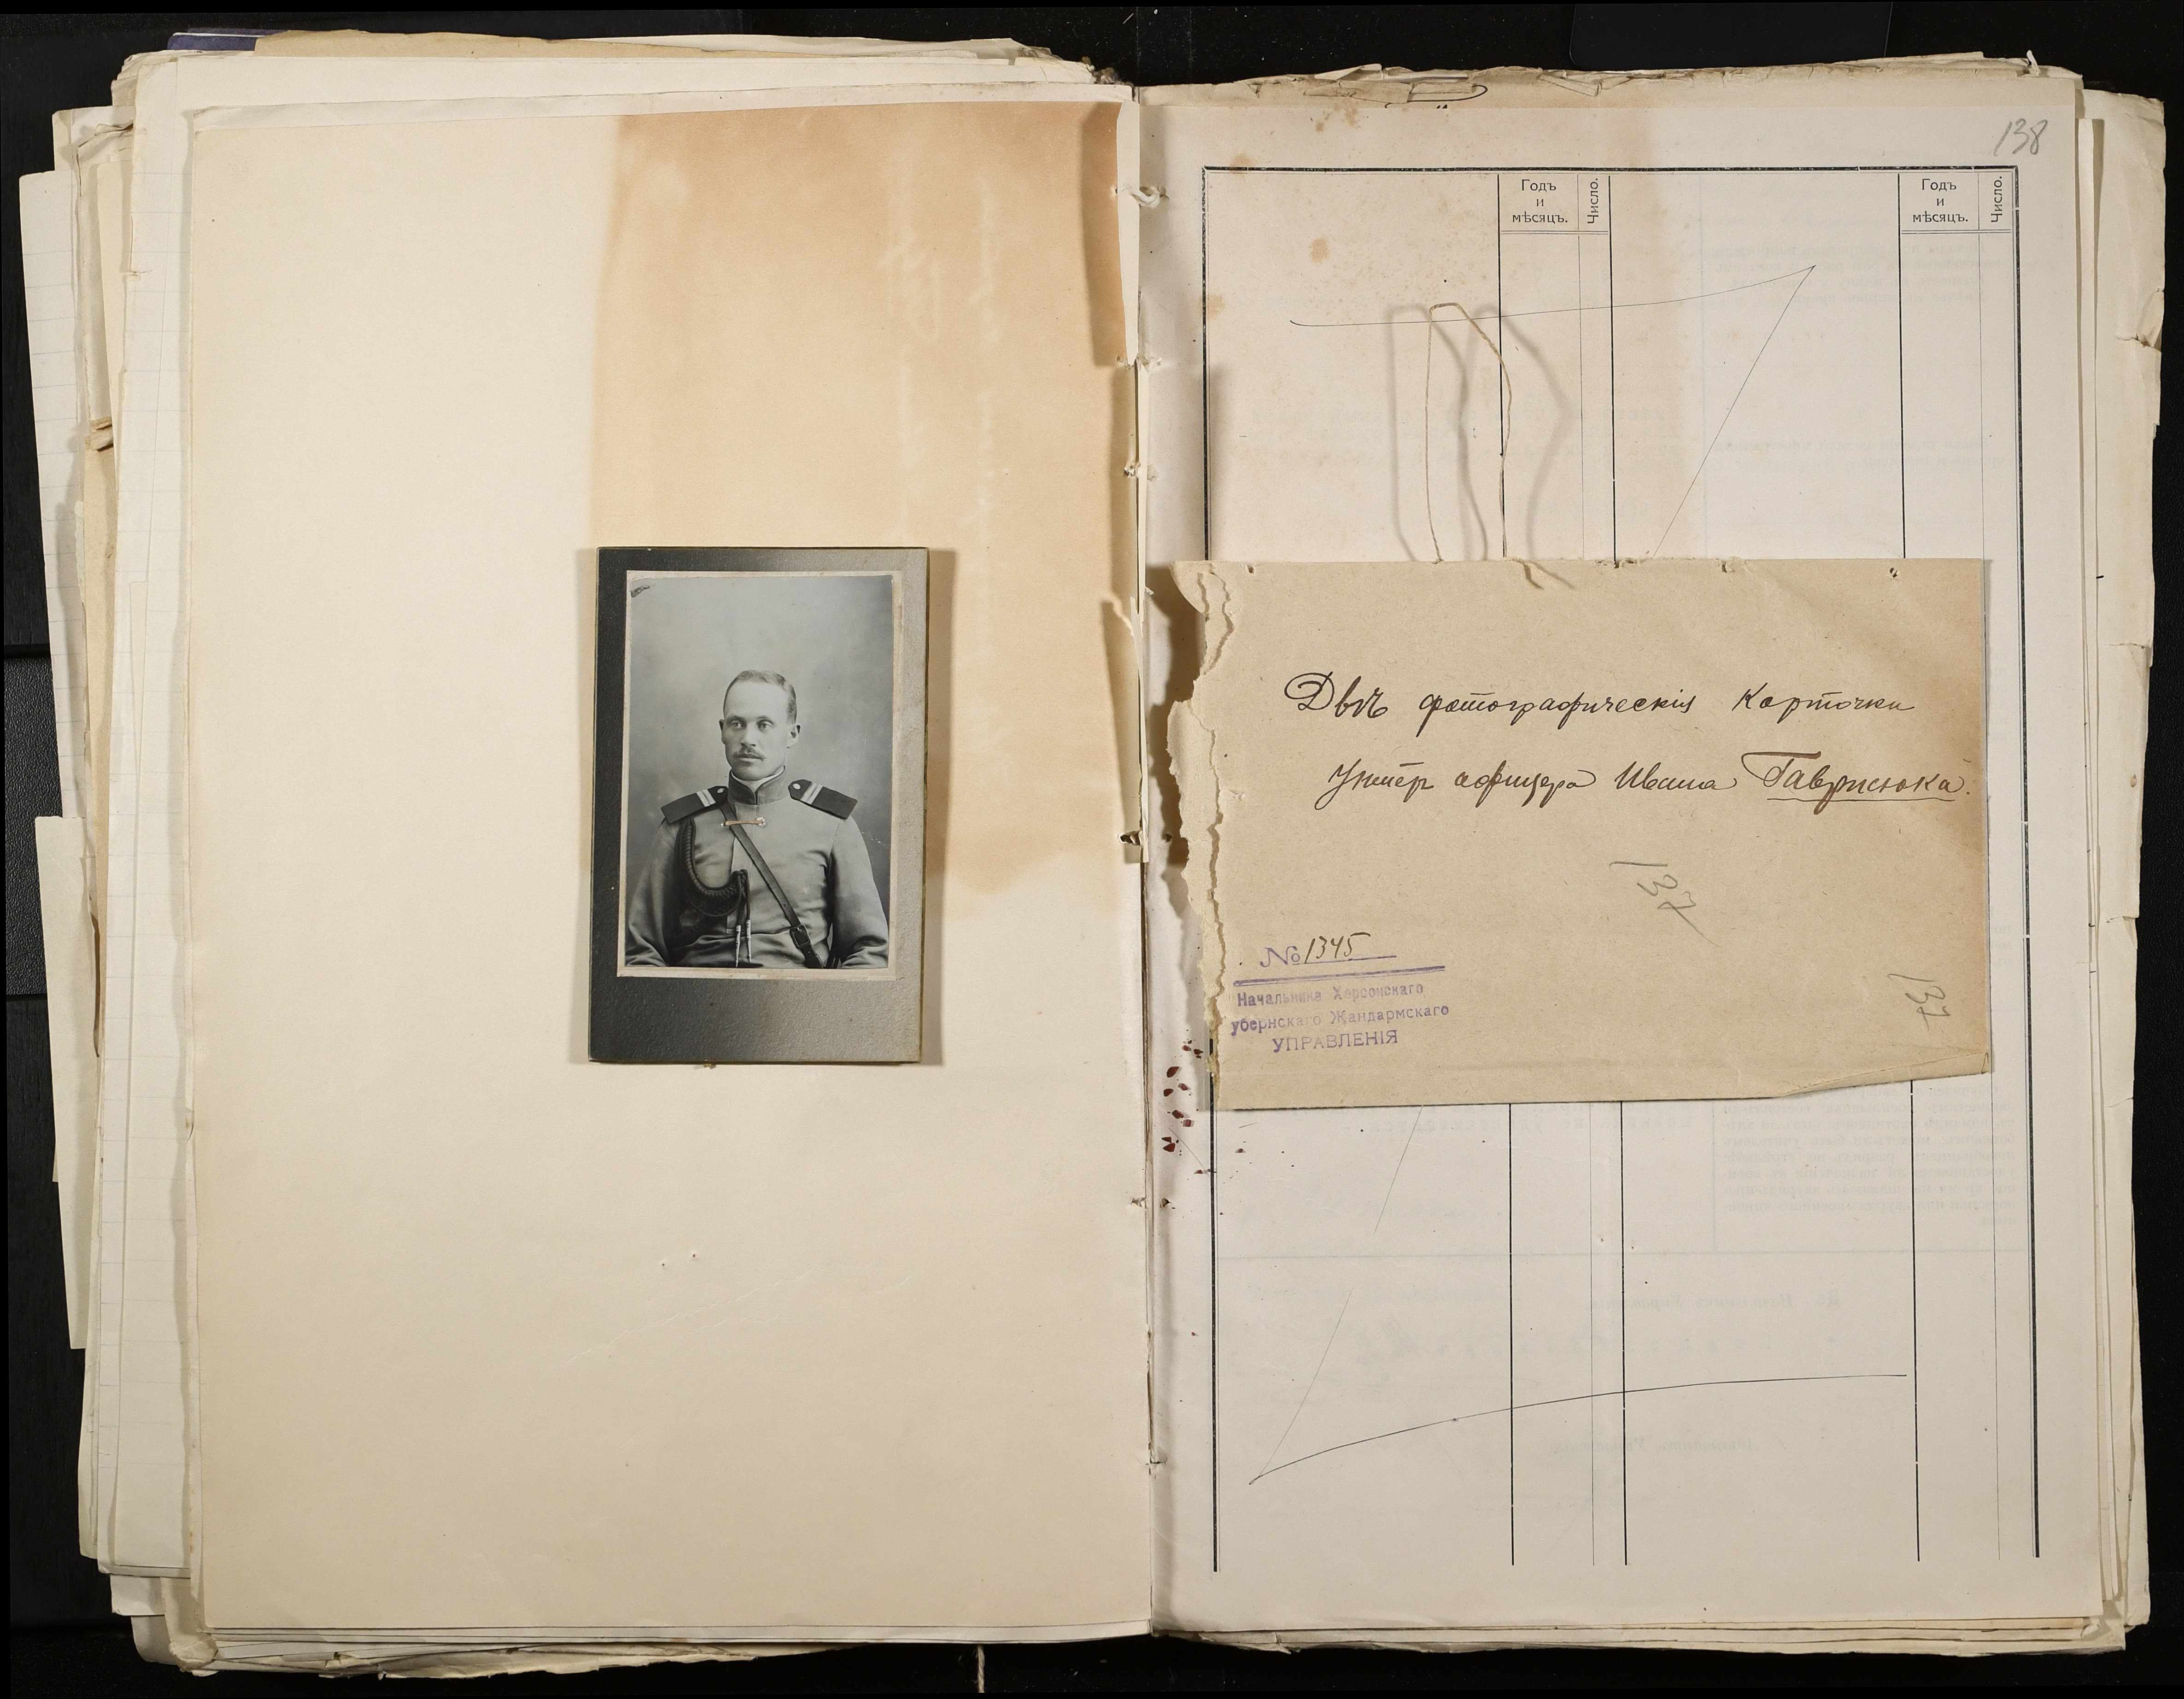 138
Годъ
и
мѣсяцъ.
Число.
Годъ
и
мѣсяцъ.
Число.
Двѣ фотографическія карточки
Унтеръ офицера Ивана Гаврисюка.
137
№ 1345
Начальника Херсонскаго
убернскаго Жандармскаго
УПРАВЛЕНІЯ
137